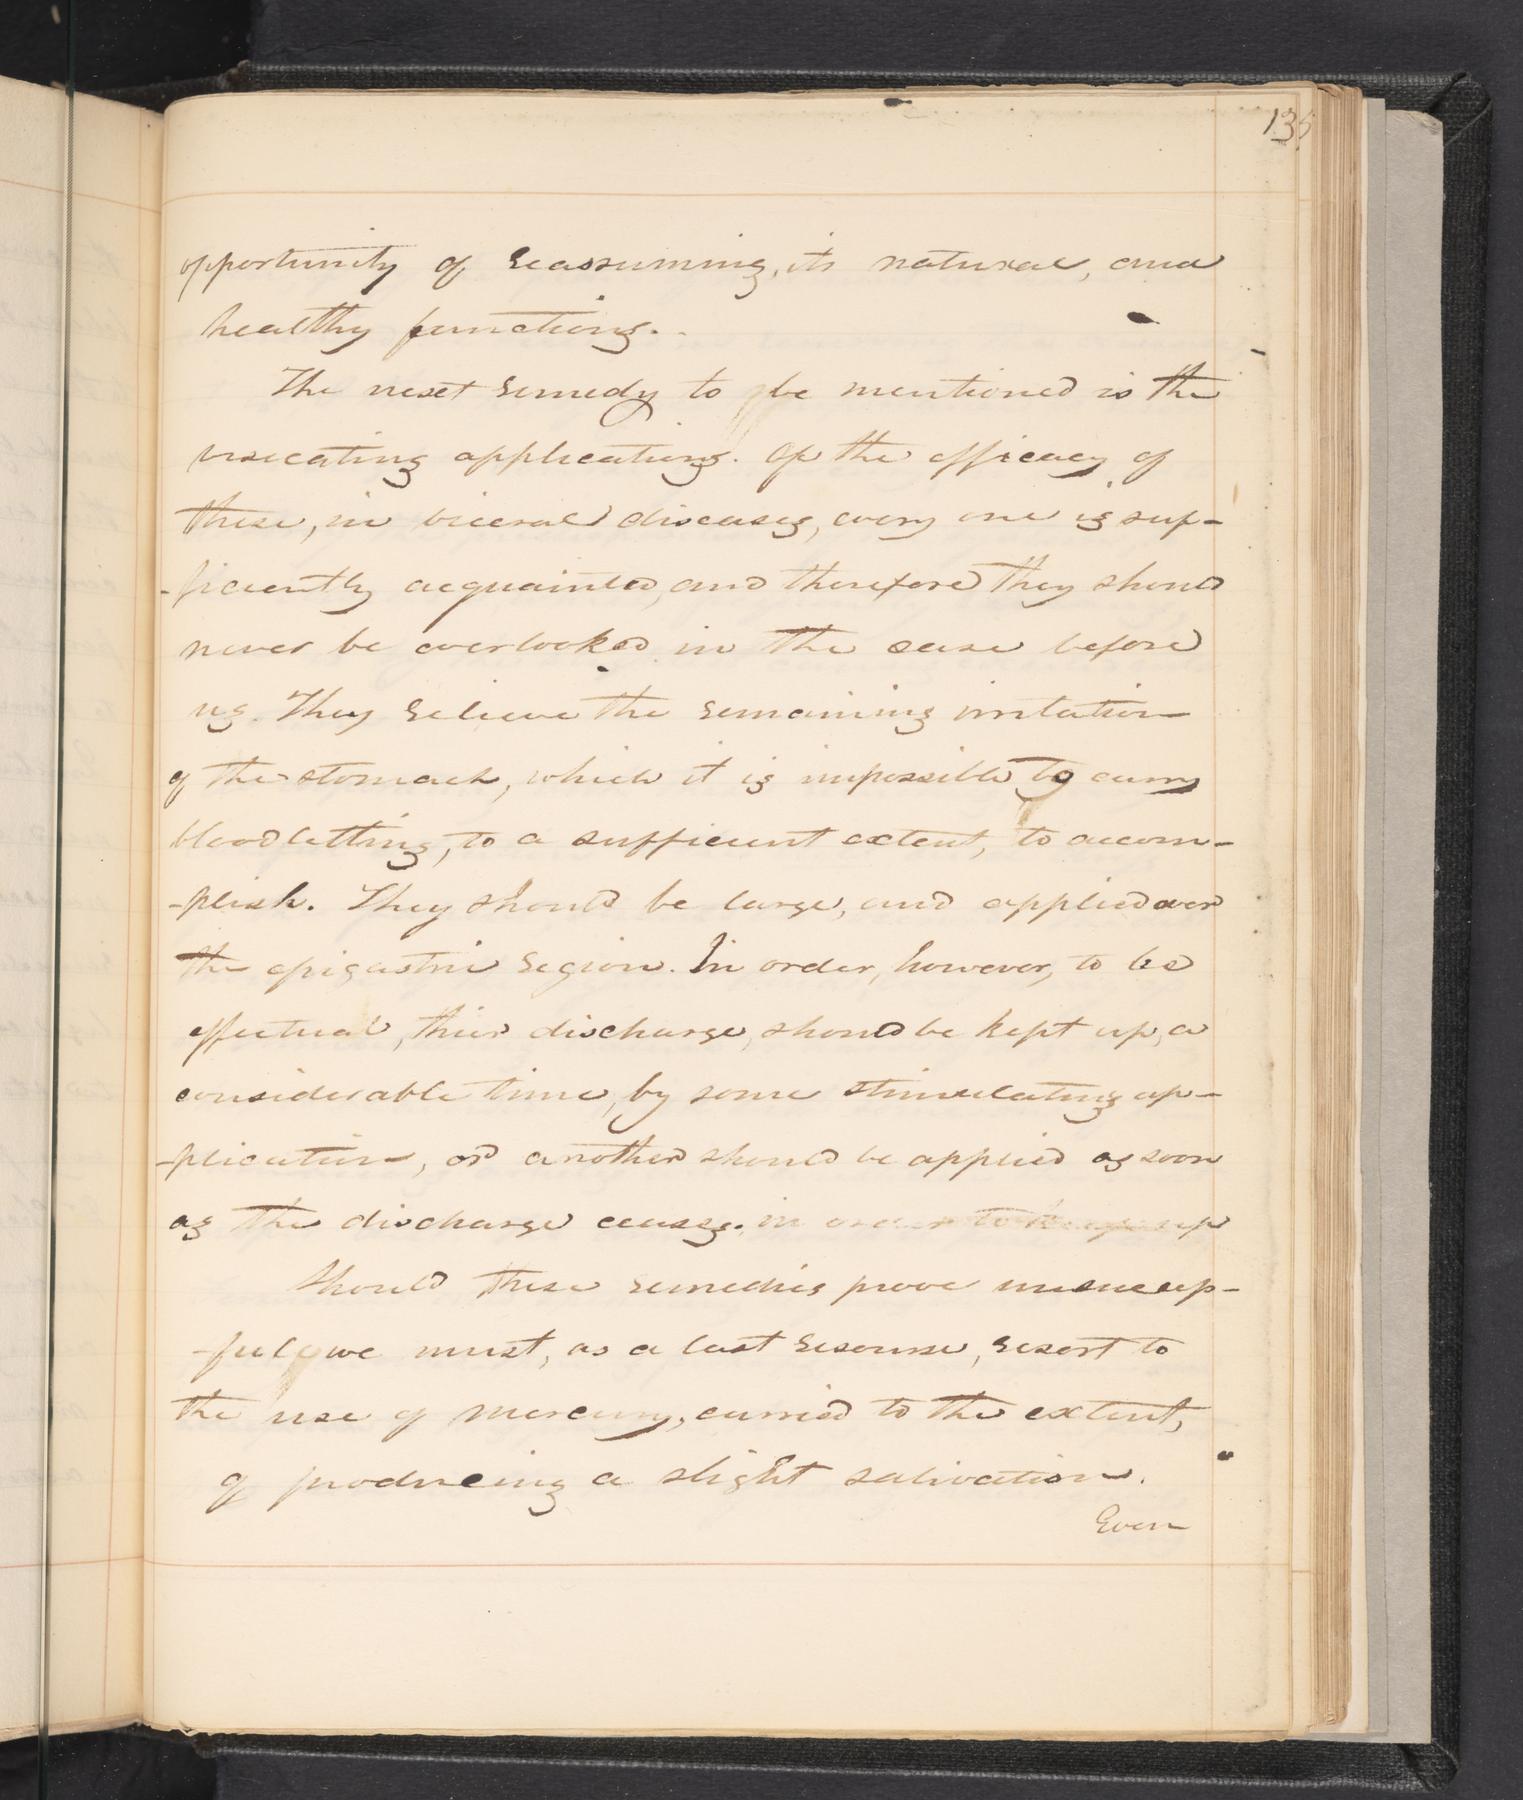 135
opportunity of reassuming, its natural, and
healthy functions.
The next remedy to be mentioned is the
vesicating applications. Of the efficacy of
these, in viceral diseases, every one is suf-
-ficiently acquainted, and therefore they should
never be overlooked in the case before
us. They relieve the remaining irritation
of the stomach, which it is impossible to carry
bloodletting, to a sufficient extent, to accom-
-plish. They should be large, and applied over
the epigastric region. In order, however, to be
effectual, their discharge, should be kept up, a
considerable time, by some stimulating ap-
-plication, or another should be applied as soon
as the discharge ceases. in order to keep up
Should these remedies prove unsucess-
-ful, we must, as a last resourse, resort to
the use of mercury, carried to the extent,
of producing a slight salivation.
Even